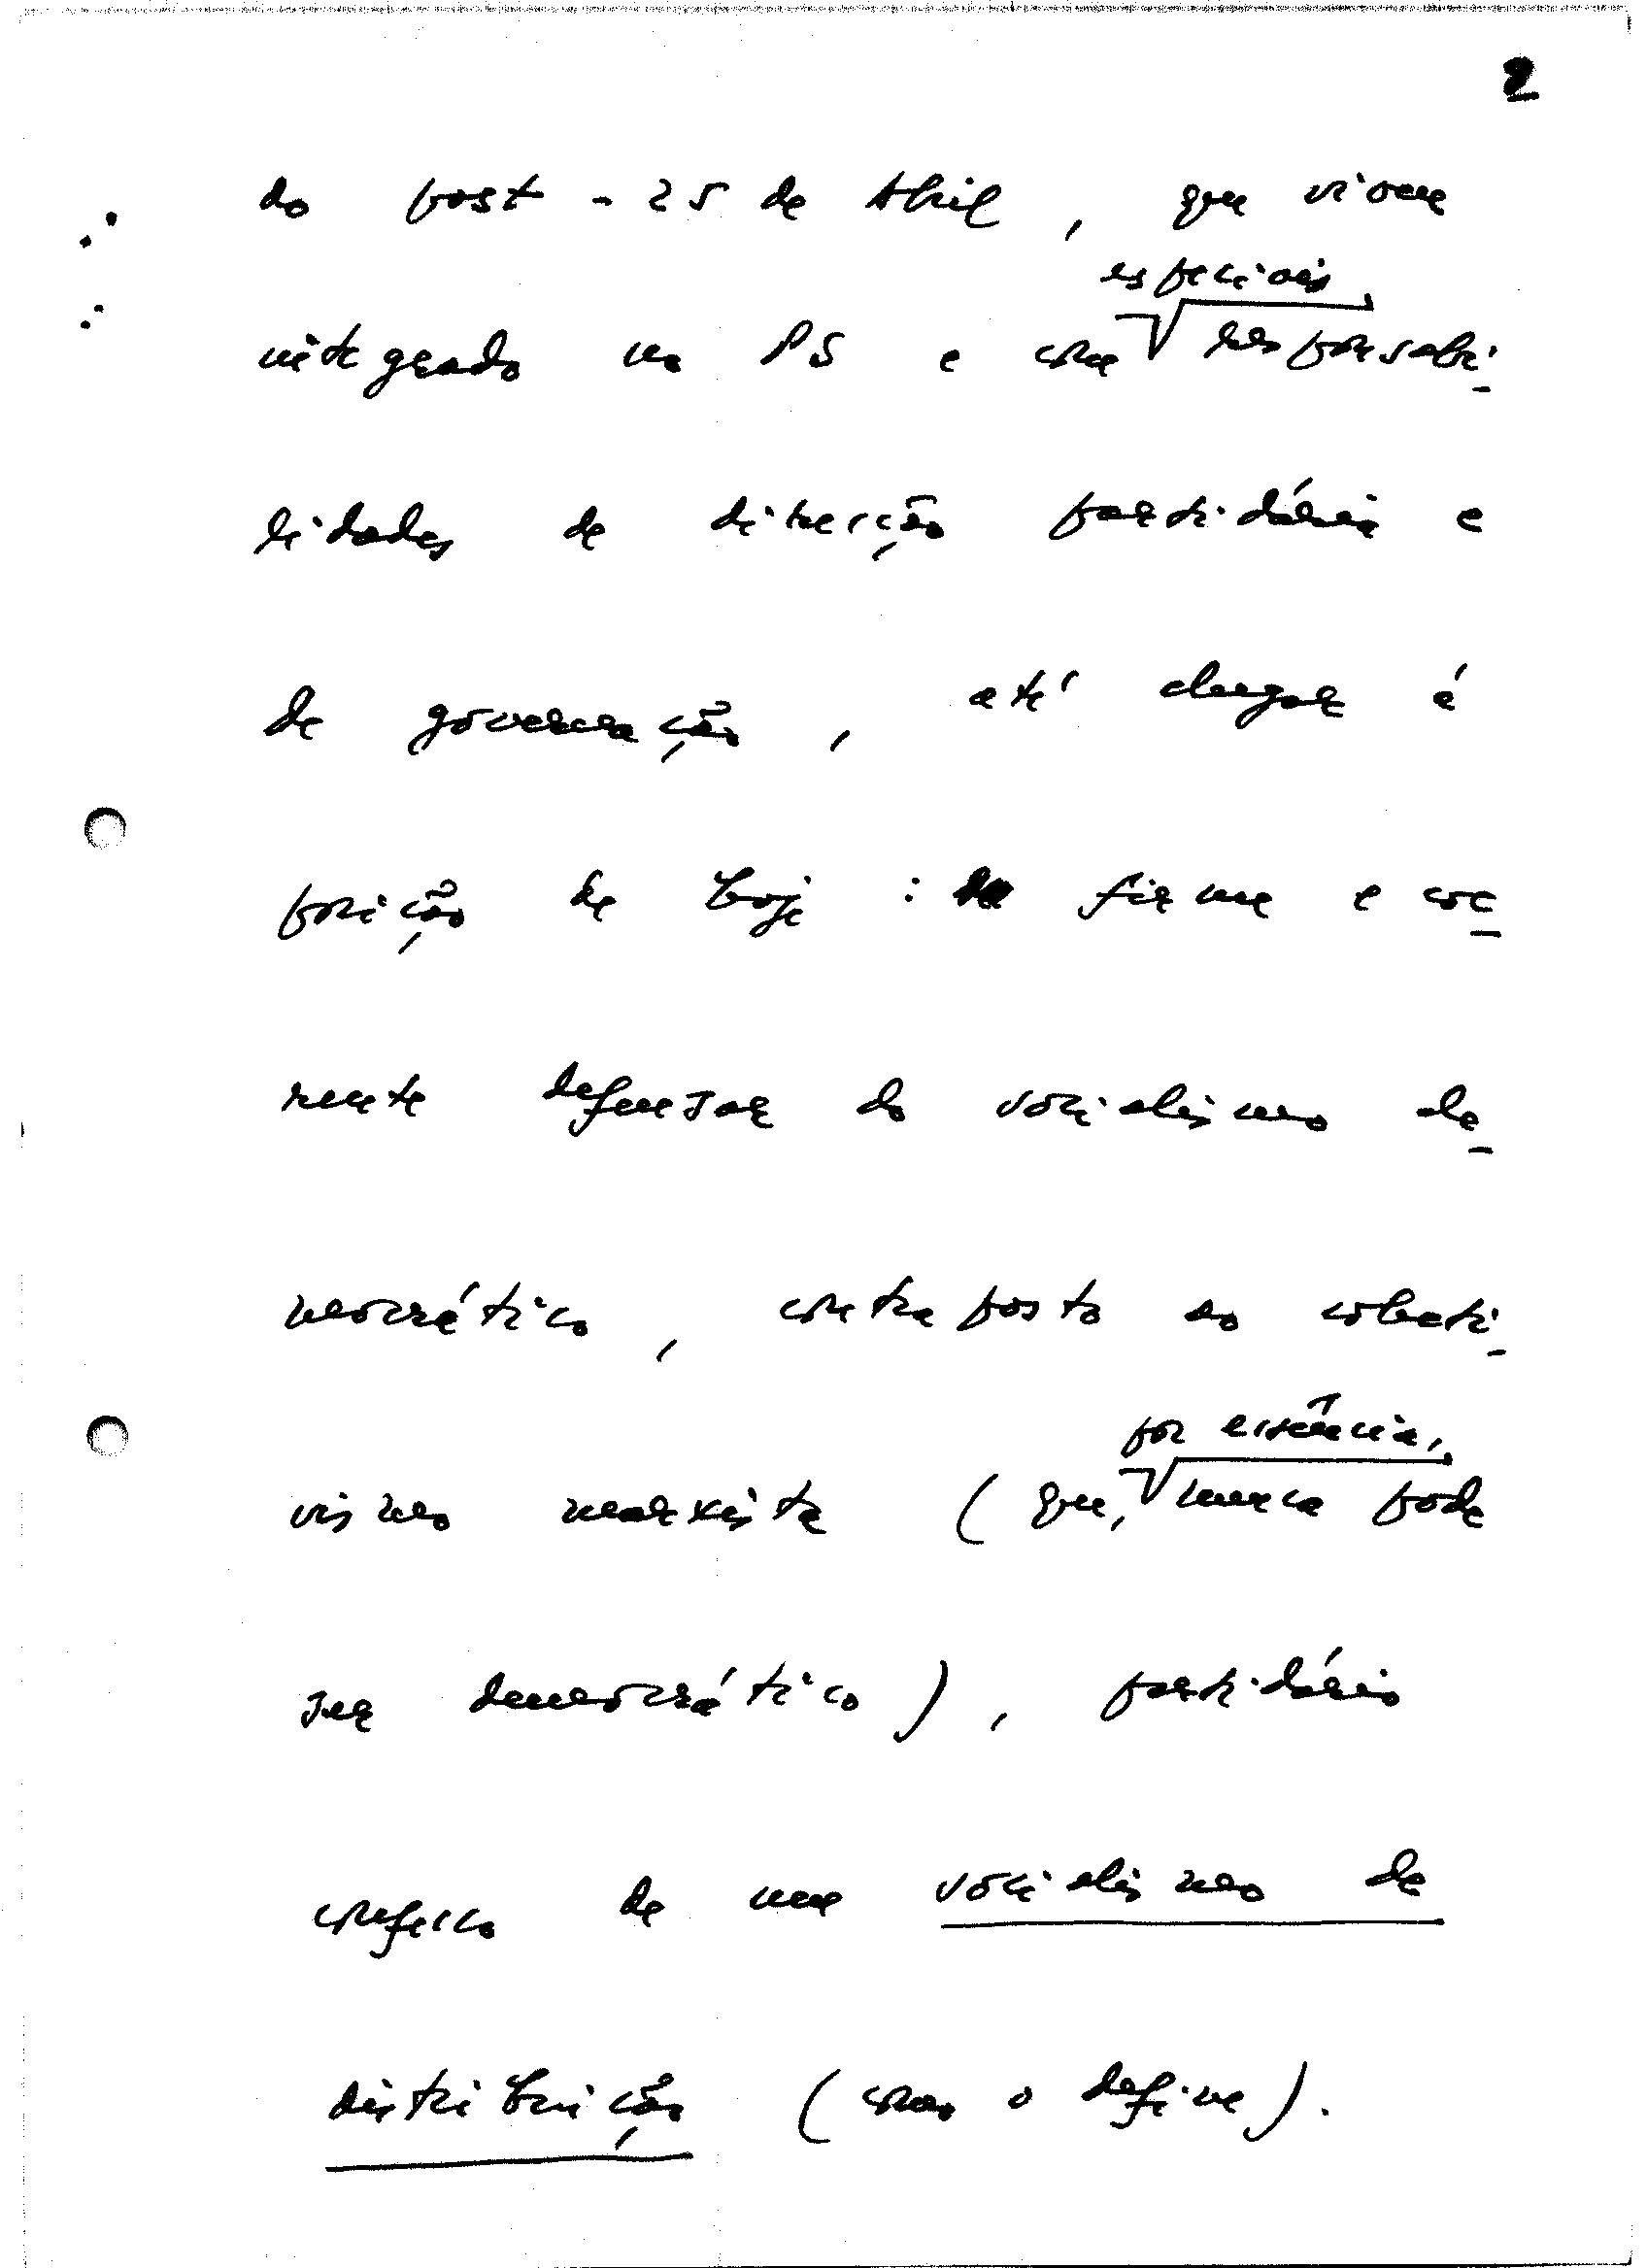 2
do post-25 de Abril, que viveu
especiais
integrado no PS e com responsabi-
lidades de direcção partidária e
de governação, até chegar à
posição de hoje: firme e coe-
rente defensor do socialismo de-
mocrático, contraposto ao colecti-
por essência,
vismo marxista (que, nunca pode
ser democrático), partidário
confesso de um socialismo de
distribuição (como o define).